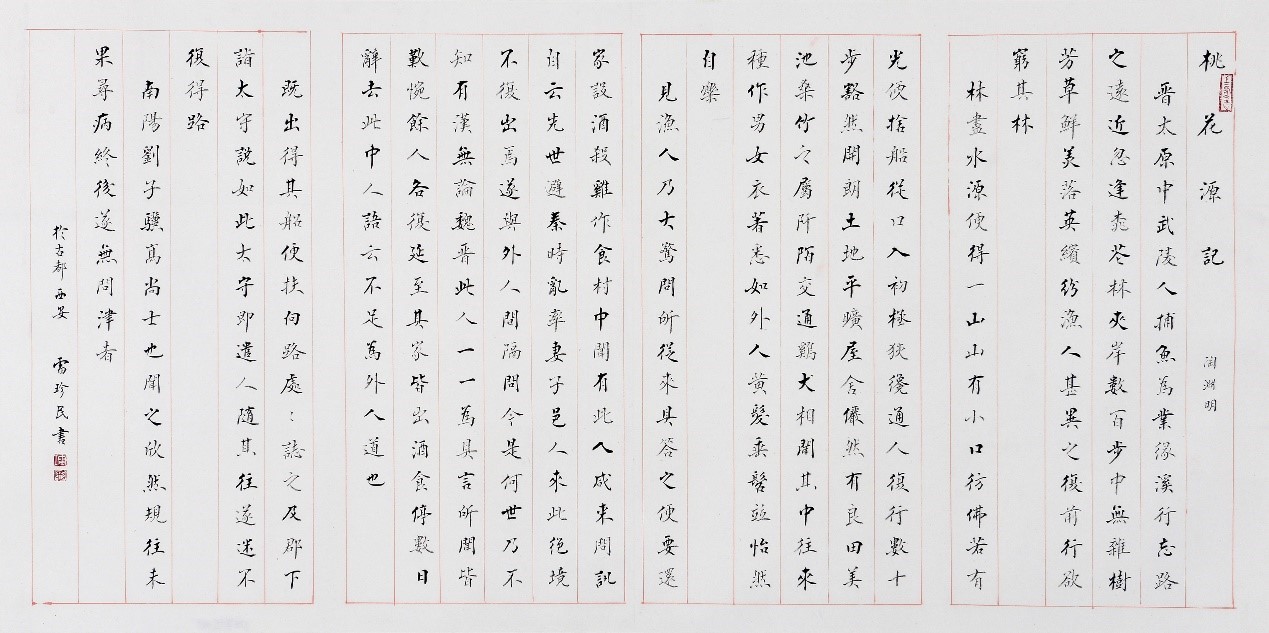 桃花源記 陶淵明
晉太原中武陵人捕魚為業緣溪行忘路
之遠近忽逢桃花林夾岸數百步中無雜樹
芳草鮮美落英繽紛漁人甚異之復前行欲
窮其林
林盡水源便得一山山有小口彷佛若有
光便捨船從口入初極狹纔通人復行數十
步豁然開朗土地平曠屋舍儼然有良田美
池桑竹之屬阡陌交通鷄犬相聞其中往來
種作男女衣著悉如外人黃髮垂髫並怡然
自樂
見漁人乃大驚問所從來具答之便要還
家設酒殺雞作食村中聞有此人咸來問訊
自云先世避秦時亂率妻子邑人來此絕境
不復出焉遂與外人間隔問今是何世乃不
知有漢無論魏晉此人一一為具言所聞皆
歎惋餘人各復延至其家皆出酒食停數日
辭去此中人語云不足為外人道也
既出得其船便扶向路處〻誌之及郡下
詣太守說如此太守即遣人隨其往遂迷不
復得路
南陽劉子驥高尚士也聞之欣然規往未
果尋病終後遂無問津者
於古都西安 雷珍民書